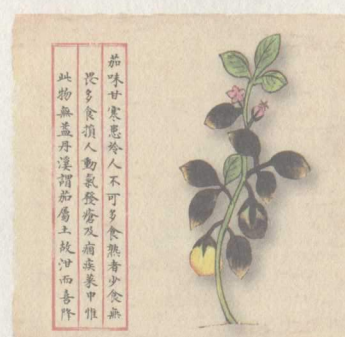 茄味甘寒患冷人不可多食熟者少食無
畏多食損人動氣發瘡及痼疾菜中惟
此物無益丹溪謂茄屬土故甘而喜降